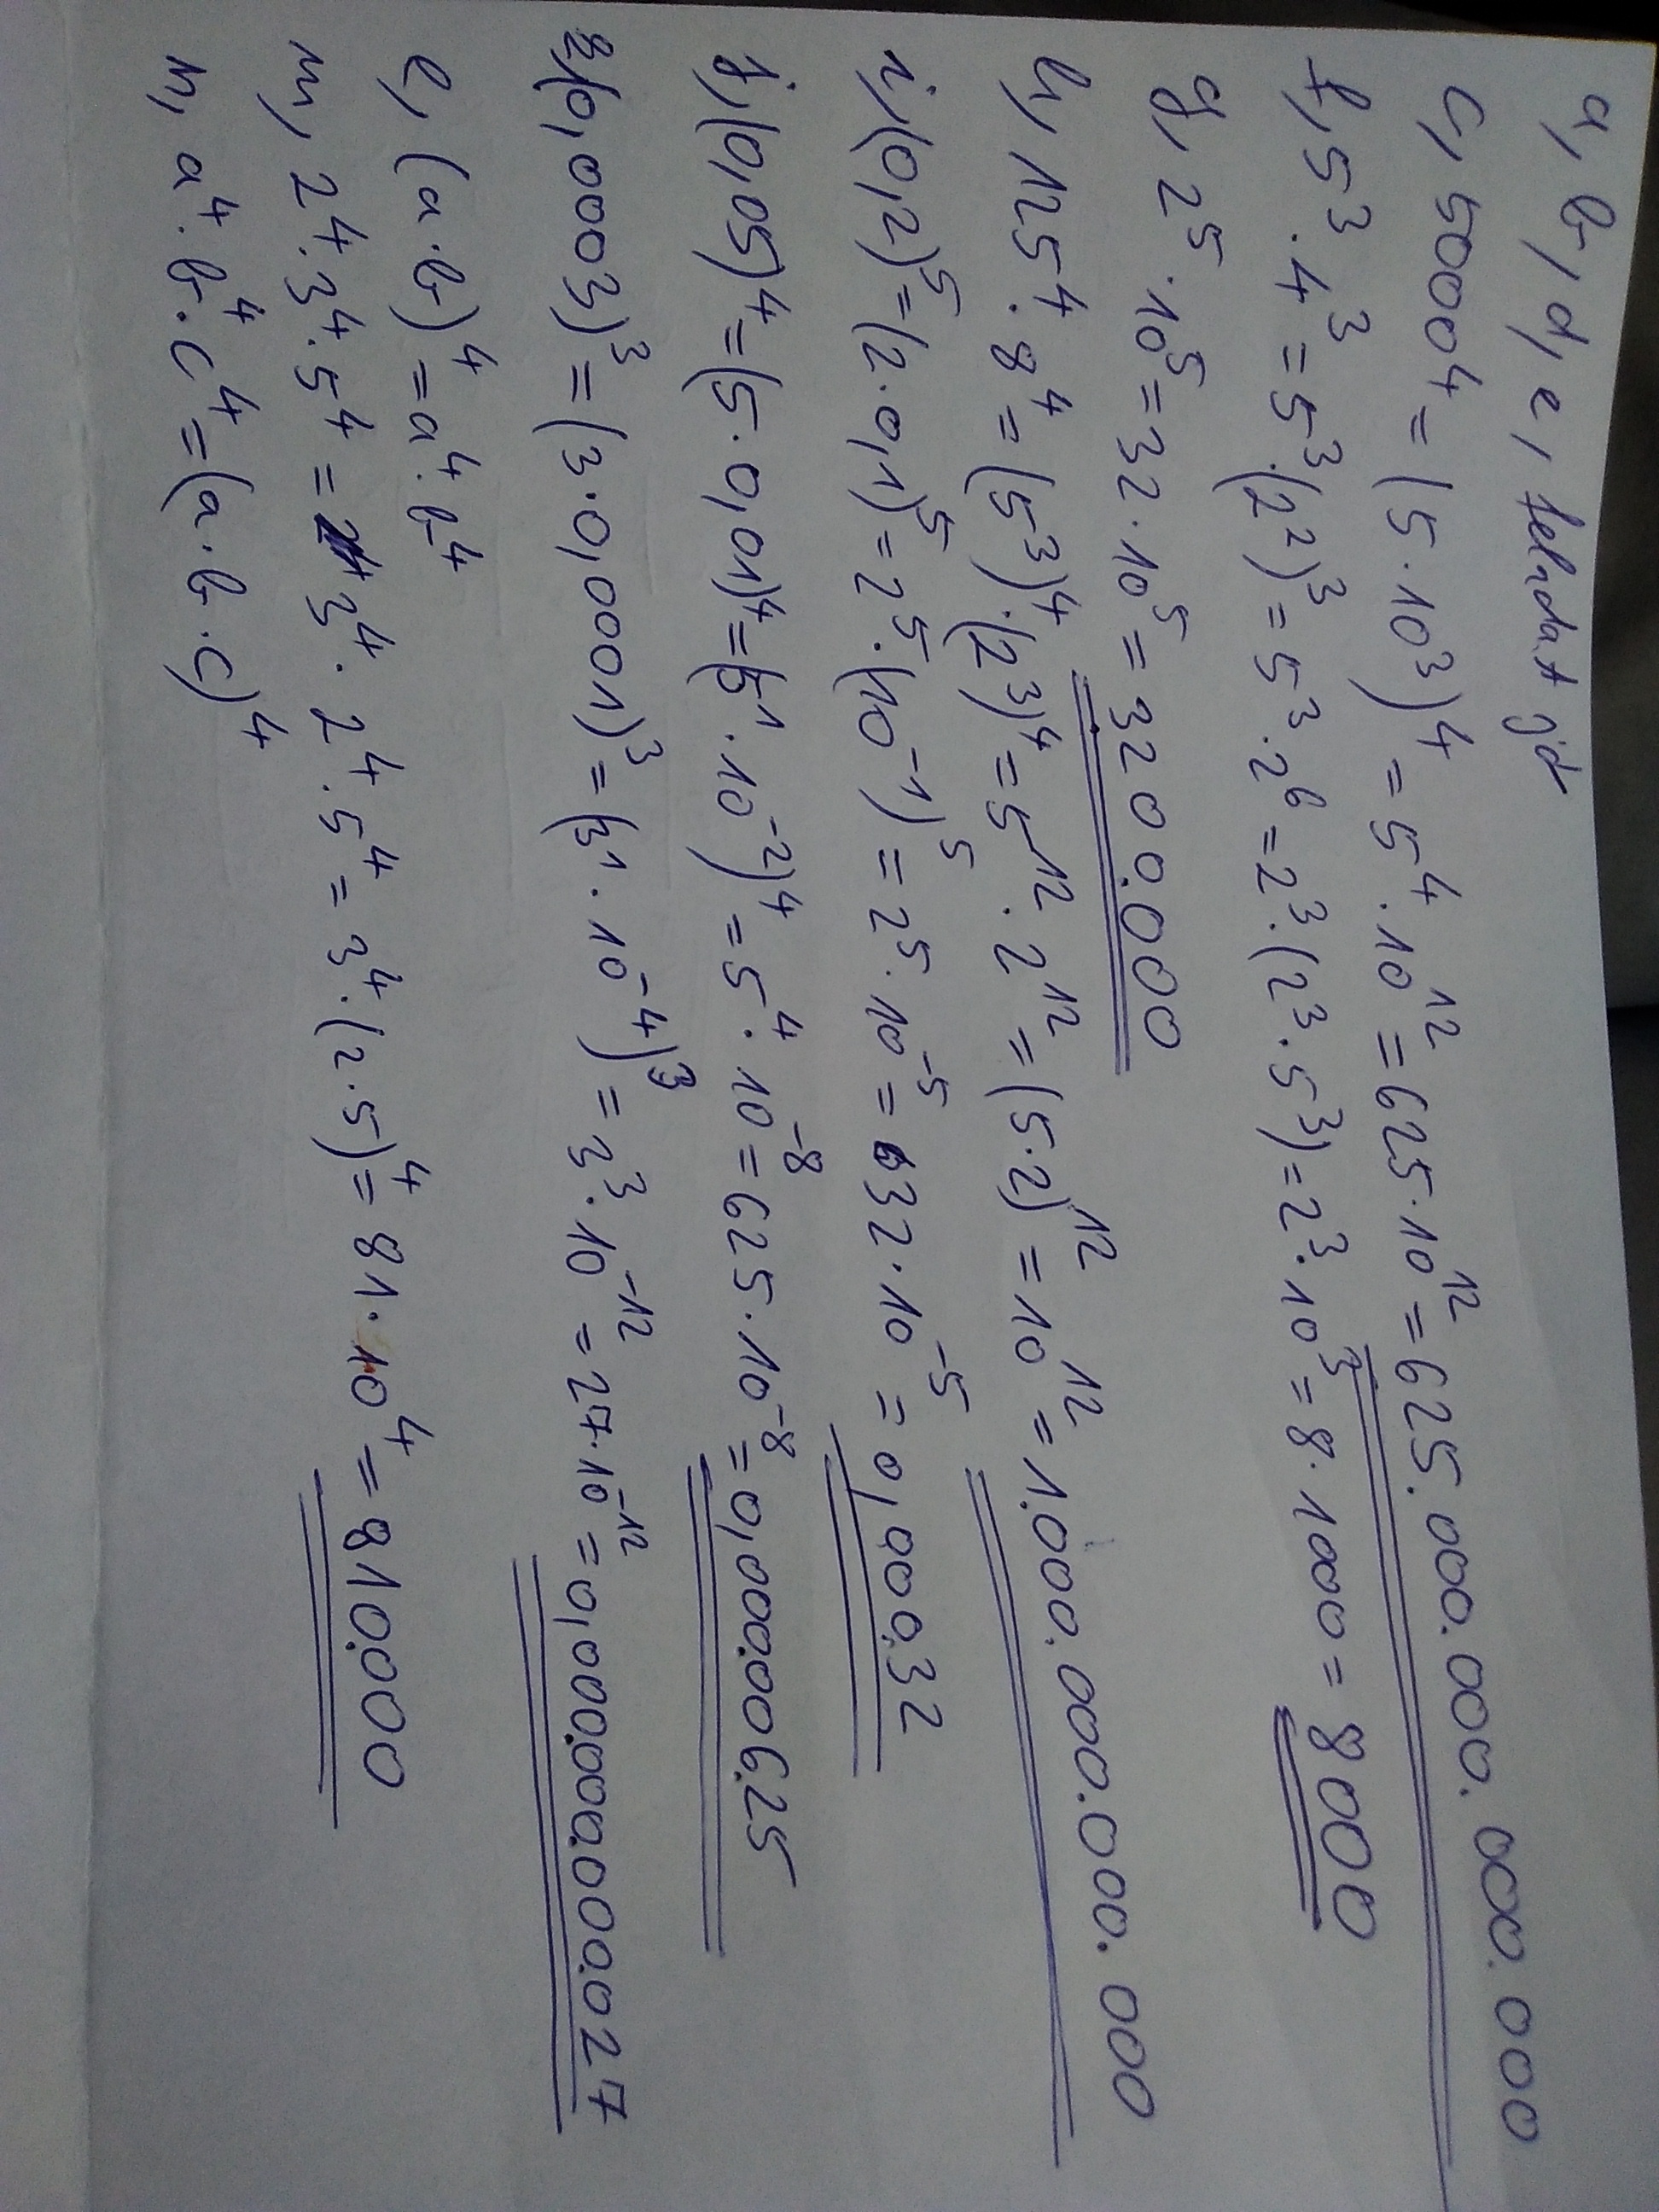 a, b, d, e, feladat jó
c, 5000⁴ = (5·10³)⁴ = 5⁴·10¹² = 625·10¹² = 625.000.000.000.000
f, 5³·4³ = 5³·(2²)³ = 5³·2⁶ = 2³·(2³·5³) = 2³·10³ = 8·1000 = 8000
g, 2⁵·10⁵ = 32·10⁵ = 3200.000
h, 125⁴·8⁴ = (5³)⁴·(2³)⁴ = 5¹²·2¹² = (5·2)¹² = 10¹² = 1.000.000.000.000
i, (0,2)⁵ = (2·0,1)⁵ = 2⁵·(10⁻¹)⁵ = 2⁵·10⁻⁵ = 32·10⁻⁵ = 0,000.32
j, (0,05)⁴ = (5·0,01)⁴ = (5¹·10⁻²)⁴ = 5⁴·10⁻⁸ = 625·10⁻⁸ = 0,000.006.25
(0,0003)³ = (3·0,0001)³ = (3¹·10⁻⁴)³ = 3³·10⁻¹² = 27·10⁻¹² = 0,000.000.000.027
l, (a·b)⁴ = a⁴·b⁴
m, 2⁴·3⁴·5⁴ = 3⁴·2⁴·5⁴ = 3⁴·(2·5)⁴ = 81·10⁴ = 810.000
n, a⁴·b⁴·c⁴ = (a·b·c)⁴